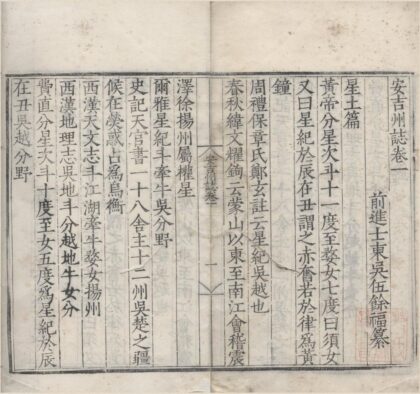 安吉州誌卷一
前進士東吳伍餘福纂
星土篇
黃帝分星次斗十一度至婺女七度曰須女
又曰星紀於辰在丑謂之赤奮若於律為黃
鐘
周禮保章氏鄭玄註云星紀吳越也
春秋緯文耀鉤云蒙山以東至南江會稽震
澤徐揚州屬權星
爾雅星紀斗牽牛吳分野
史記天官書二十八舍主十二州吳楚之疆
候在熒惑占為鳥衡
西漢天文志斗江湖牽牛婺女揚州
西漢地理志吳地斗分越地牛女分
費直分星次斗十度至女五度為星紀於辰
在丑吳越分野